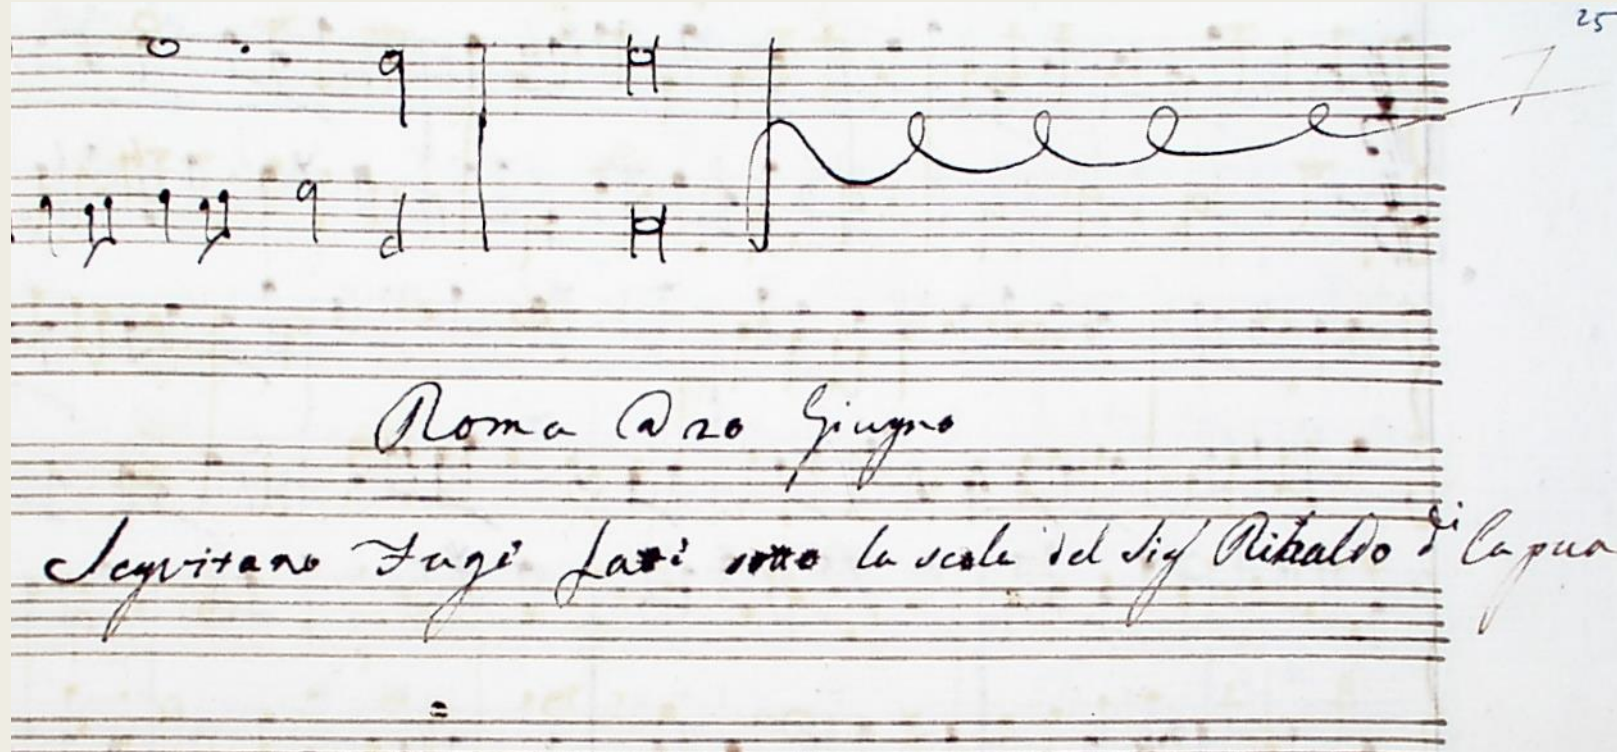 25
Roma @ 20 Giugno
Seguitano Fugi fatti sotto la scola del Sig Rinaldo di Capua